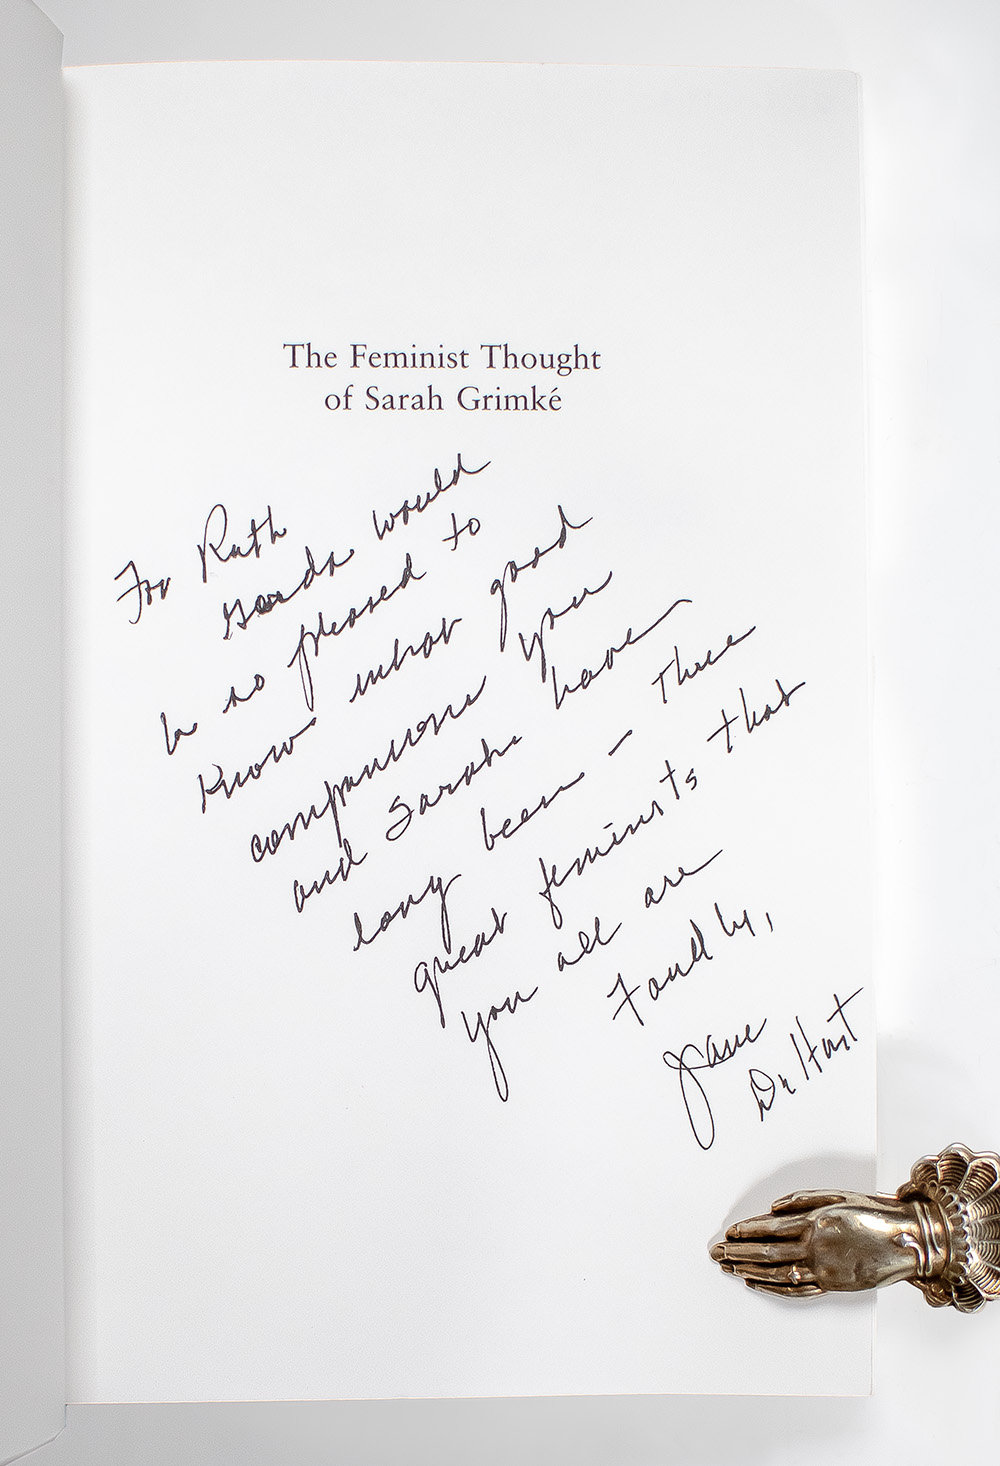 The Feminist Thought
of Sarah Grimké
For Ruth
Gerda would
be so pleased to
know what good
companions you
and Sarah have
long been – three
great feminists that
you all are
Fondly,
Jane
De Hart